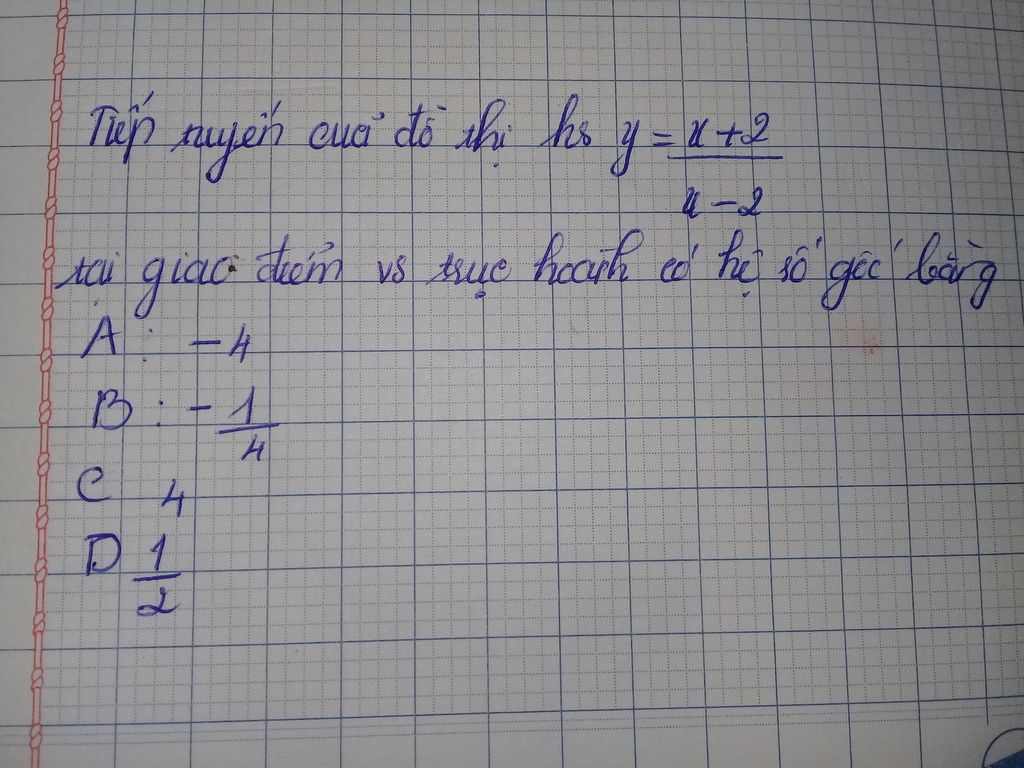 Tiếp tuyến của đồ thị hs y = x + 2
x - 2
tại giao điểm vs trục hoành có hệ số góc bằng
A : - 4
B : - 1
4
C 4
D 1
2